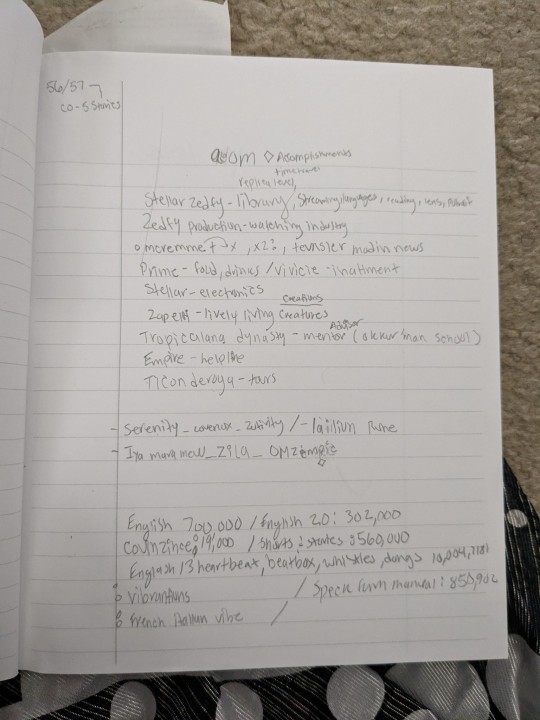 56/57
co-5 Stories
aeom ◇ Accomplishments
timetravel
replica level
Stellar Zedfy - library, Streaming languages, reading, lens,
Zedfy production - watching industry
x, x2?, madin news
Prime - Food, drinks / vivicie - inatiment
Stellar - electronics
Creations
Zapelli - lively living Creatures
Advisor
Tropiccalana dynasty - mentor (okkur'man school)
Empire - helpline
Ticonderoga - tours
- Serenity _ _ / - Rune
- Iya muramew _ Zila _ OMZ temple
English 700,000 / English 2.0: 302,000
Covinzince: 19,000 / shorts 2 stories: 0560,000
English / 3 heartbeat, beatbox, whistles, dungs 10,004,
8 vibrantions / Speck Farm manual: 850,902
8 French Italian vibe /